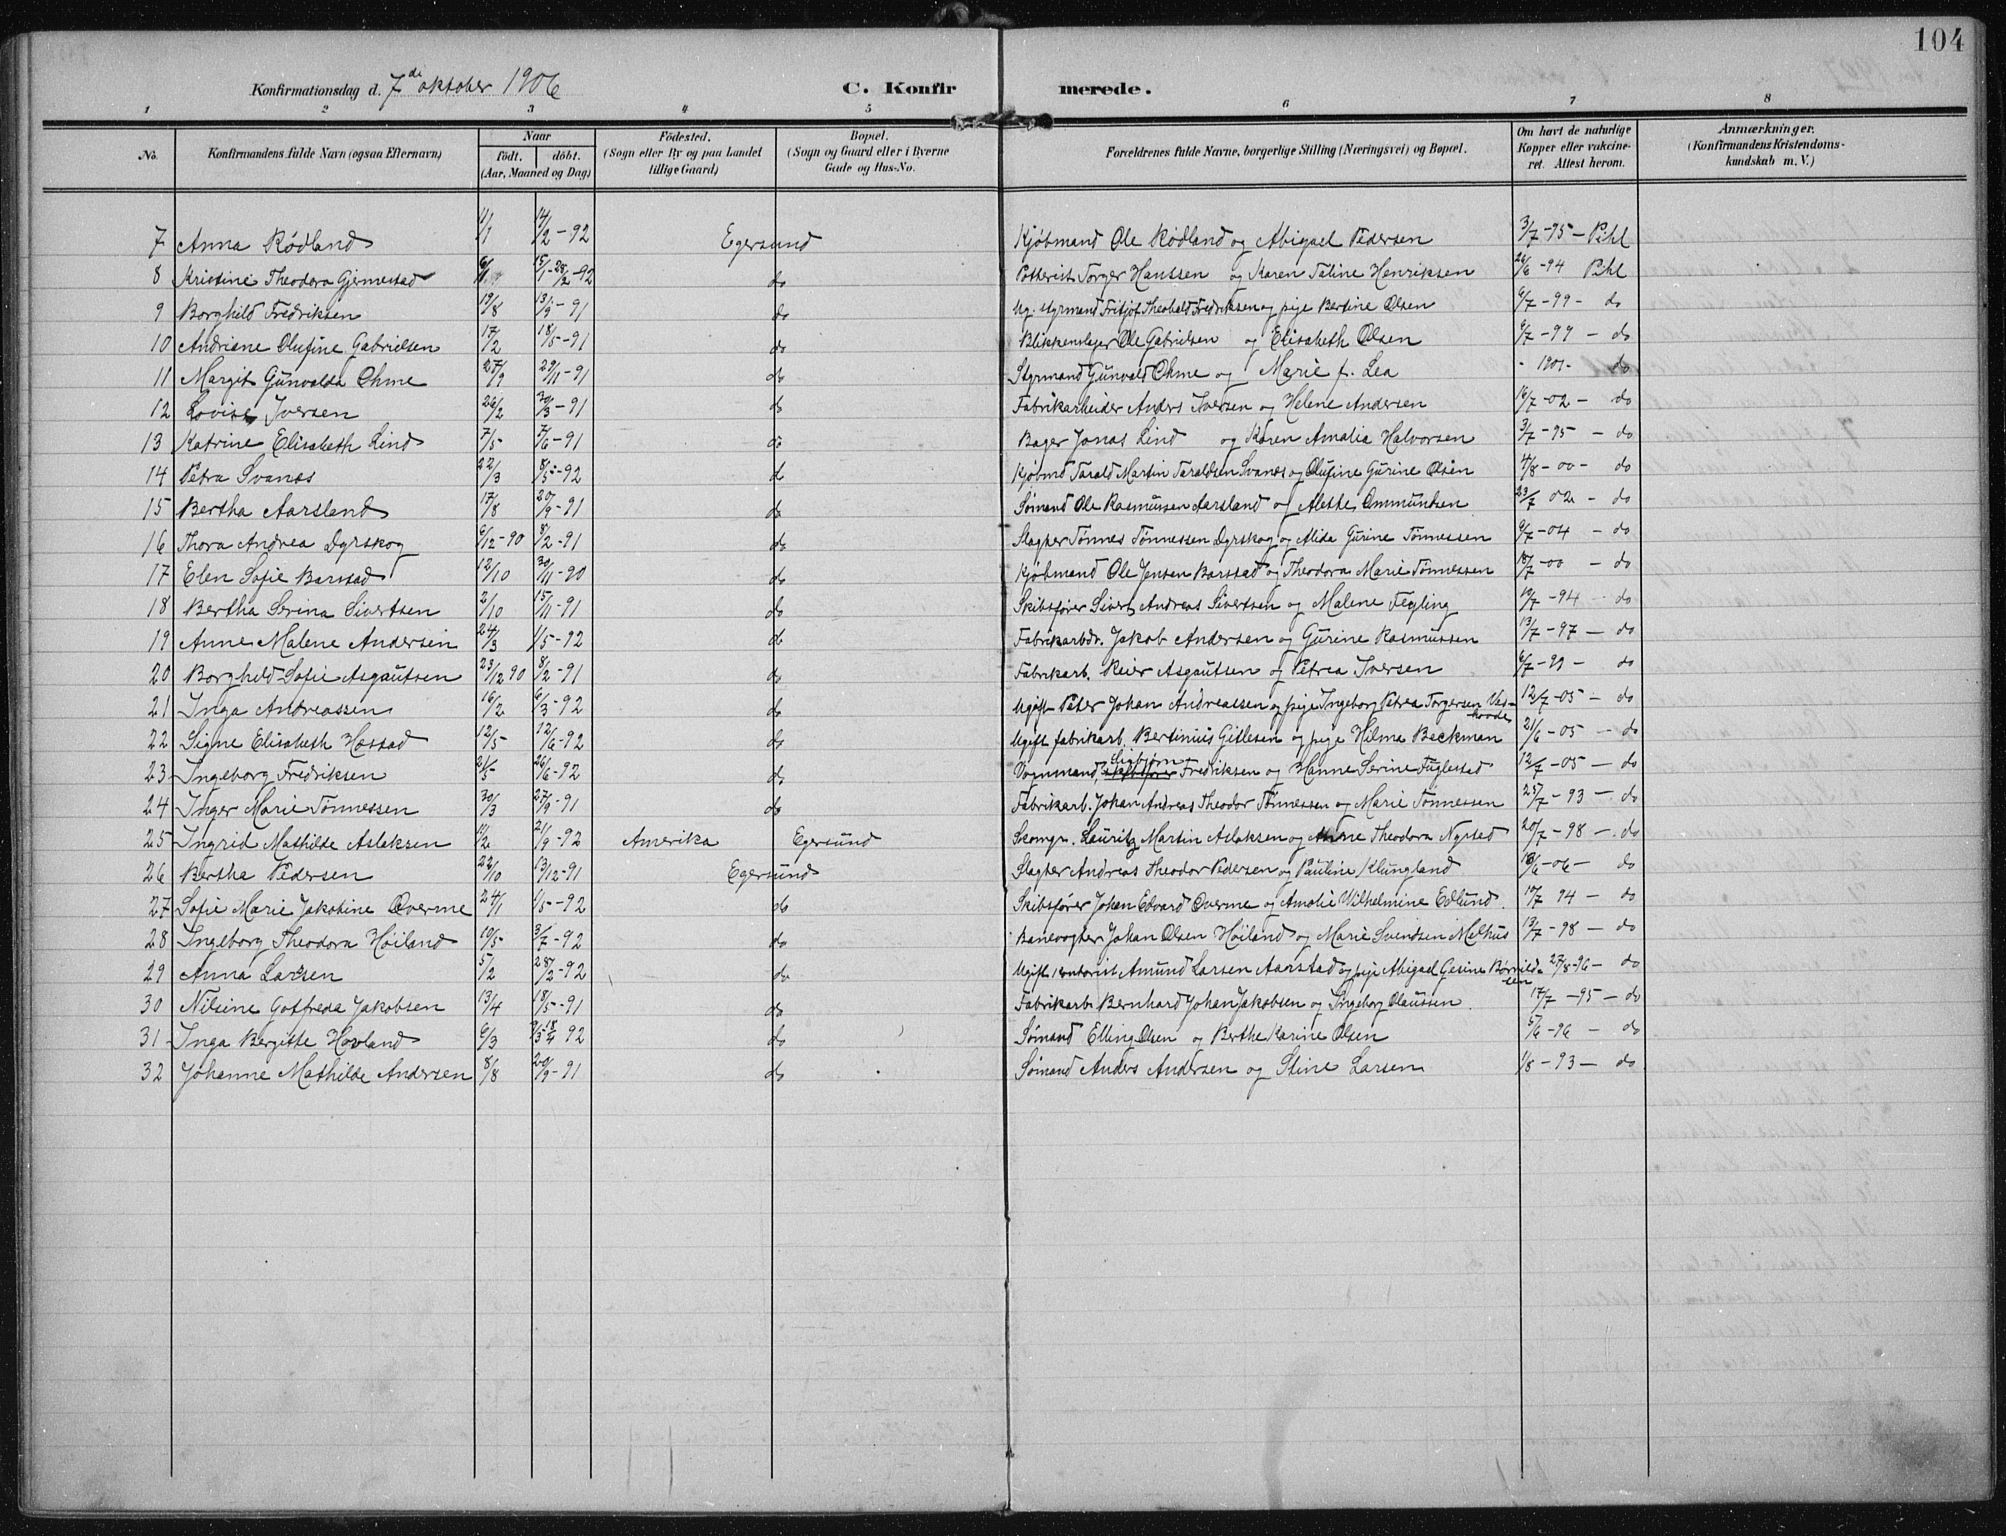 104
Konfirmationsdag d. 7de oktober 1906 C. Konfirmerede.
1 2 3 4 5 6 7 8
No. Konfirmandens fulde Navn (ogsaa Efternavn) Naar født. døbt. (Aar, Maaned og Dag) Fødested. (Sogn eller By og paa Landet tillige Gaard) Bopæl. (Sogn og Gaard eller i Byerne Gade og Hus-No. Forældrenes fulde Navne, borgerlige Stilling (Næringsvei) og Bopæl. Om havt de naturlige Kopper eller vakcineret. Attest herom. Anmærkninger. (Konfirmandens Kristendomskundskab m. V.)
7 Anna Rödland 11/1 14/2-92 Egersund Kjøbmand Ole Rödland og Abigael Pedersen 3/7-95- Pihl
8 Kristine Theodora Gjermestad 15/1-28/2-92 do Potterist Torger Hanssen og Karen Taline Henriksen 26/6-94 Pihl
9 Borghild Fredriksen 19/8 13/9-91 do Ug. styrmand Fritjof Theobald Fredriksen og pige Bertine Olsen 6/7-99- do
10 Andriane Olufine Gabrielsen 17/2 18/5-91 do Blikkenslager Ole Gabrielsen og Elisabeth Olsen 6/7-99- do
11 Margit Gunvalda Ohme 27/9 29/11-91 do Styrmand Gunvald Ohme og Marie f. Lea - 1901- do
12 Lovise Iversen 26/2 30/3-91 do Fabrikarbeider Anders Iversen og Helene Andersen 16/7-02- do
13 Katrine Elisabeth Lind 7/5 7/6-91 do Bager Jonas Lind og Karen Amalia Halvorsen 3/7-95- do
14 Petra Svanes 22/3 8/5-92 do Kjøbmd Tarald Martin Taraldsen Svanes og Olufine Gurine Olsen 4/8-00- do
15 Bertha Aarsland 17/8 20/9-91 do Sømand Ole Rasmussen Aarsland og Alette Ommundsen 23/7 02- do
16 Thora Andrea Dyrskog 6/12-90 8/2-91 do Slagter Tønnes Tønnessen Dyrskog og Alida Gurine Tønnessen 6/7-04- do
17 Elen Sofie Barstad 12/10 30/11-90 do Kjøbmand Ole Jensen Barstad og Theodora Marie Tønnessen 18/7-00- do
18 Bertha Serina Sivertsen 2/10 15/11-91 do Skibsfører Sivert Andreas Sivertsen og Malene Fegling 19/7-94- do
19 Anne Malene Andersen 24/3 1/5-92 do Fabrikarbdr. Jakob Andersen og Gurine Rasmussen 13/7-97- do
20 Borghild Sofie Asgautsen 23/12 90 8/2-91 do Fabrikarb. Reier Asgautsen og Petrea Iversen 6/7-99- do
21 Inga Andreassen 16/2 6/3-92 do Ugift Peter Johan Andreassen og pige Ingeborg Petrea Torgersen 12/7-05- do
22 Signe Elisabeth Hæstad 12/5 12/6-92 do Ugift fabrikarb. Bertinius Gitlesen og pige Hilma Beckman 21/6-05- do
23 Ingeborg Fredriksen 21/5 26/6-92 do Vognmand, Sigbjørn Fredriksen og Hanne Serine Fuglestad 12/7-05- do
24 Inger Marie Tönnessen 30/3 27/9-91 do Fabrikarb. Johan Andreas Theodor Tønnessen og Marie Tønnessen 25/7-93- do
25 Ingrid Mathilde Aslaksen 11/2 21/9-92 Amerika Egersund Skomgr. Lauritz Martin Aslaksen og Anne Theodora Nystad 20/7-98- do
26 Berthe Pedersen 22/10 13/12-91 Egersund Slagter Andreas Theodor Pedersen og Pauline Klungland 18/6-06- do
27 Sofie Marie Jakobine Qverme 24/1 1/5-92 do Skibsfører Johan Edvard Qverme og Amalie Wilhelmine Edlund. 10/7 94- do
28 Ingeborg Theodora Høiland 19/5 3/7-92 do Banevogter Johan Olsen Høiland og Marie Svendsen Melhus 13/7-98- do
29 Anna Larsen 5/2 28/2-92 do Ugift kontorist Amund Larsen Aarstad og pige Abigael Gesine Børrildsen 27/8-96- do
30 Nilsine Gotfreda Jakobsen 13/4 18/5-91 do Fabrikarb. Bernhard Johan Jakobsen og Ingeborg Olaussen. 17/7-95- do
31 Inga Bergitte Hovland 6/3 18/4 92 do Sømand Elling Olsen og Berthe Karine Olsen 5/6-96- do
32 Johanne Mathilde Andersen 8/8 20/9-91 do Sømand Anders Andersen og Stine Larsen 1/8-93- do